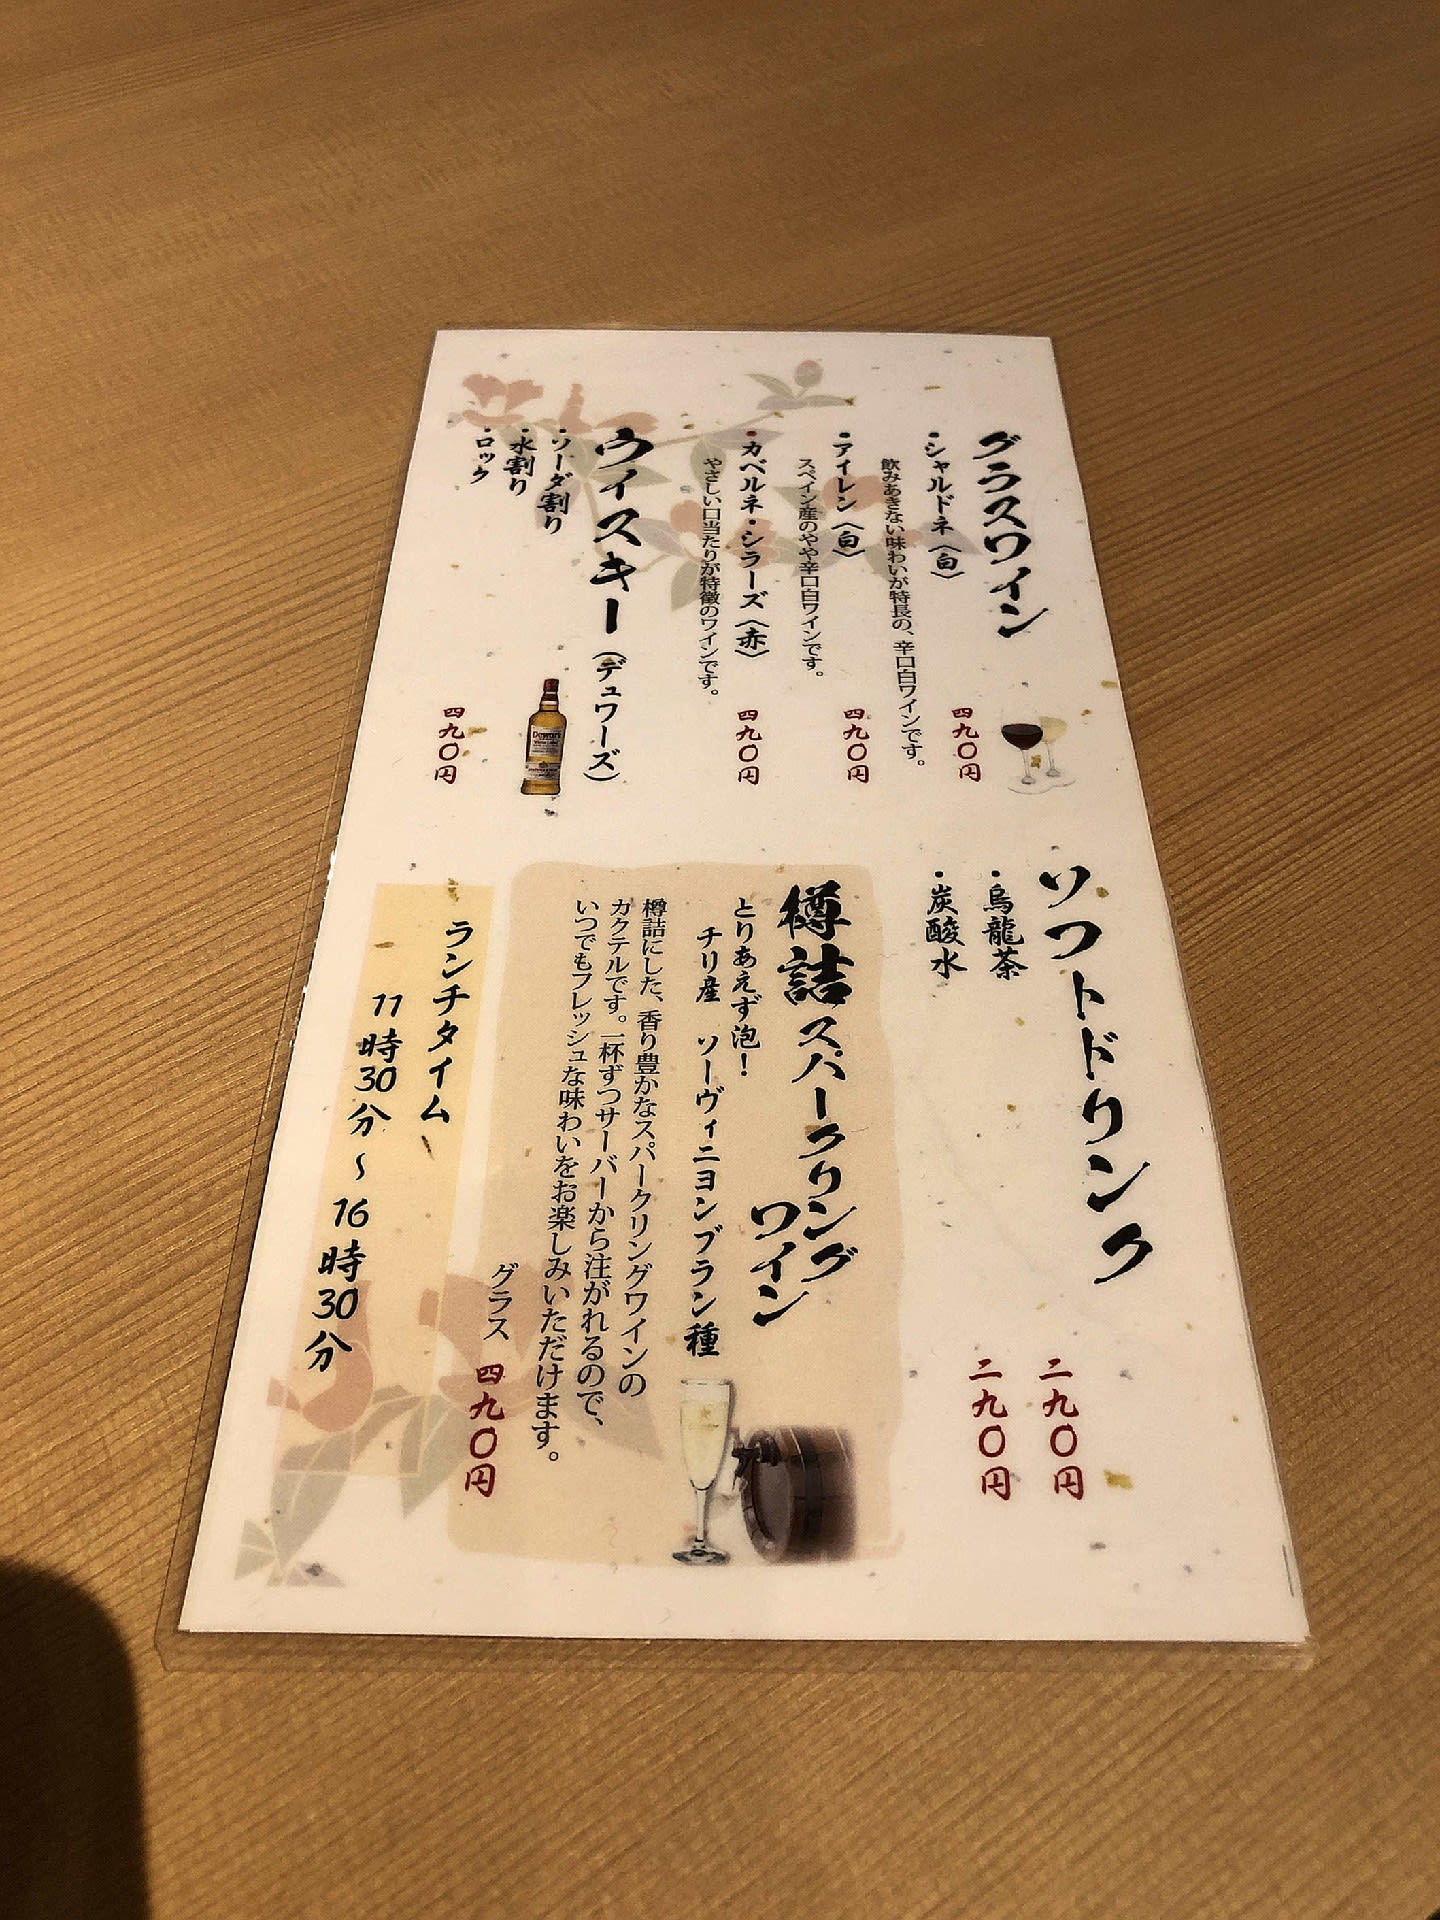 グラスワイン
・シャルドネ〈白〉
飲みあきない味わいが特長の、辛口白ワインです。
四九〇円
・アイレン〈白〉
スペイン産のやや辛口白ワインです。
四九〇円
・カベルネ・シラーズ〈赤〉
やさしい口当たりが特徴のワインです。
四九〇円
ウイスキー（デュワーズ）
・ソーダ割り
・水割り
・ロック
四九〇円
Dewar's
ソフトドリンク
・烏龍茶
二九〇円
・炭酸水
二九〇円
樽詰スパークリング
ワイン
とりあえず泡！
チリ産 ソーヴィニヨンブラン種
樽詰にした、香り豊かなスパークリングワインの
カクテルです。一杯ずつサーバーから注がれるので、
いつでもフレッシュな味わいをお楽しみいただけます。
グラス 四九〇円
ランチタイム
11時30分～16時30分